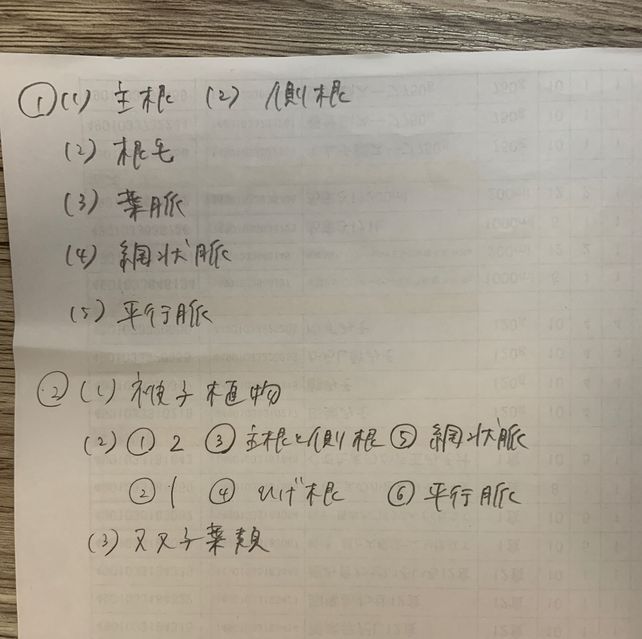 ① (1) 主根 (2) 側根
(2) 根毛
(3) 葉脈
(4) 網状脈
(5) 平行脈
② (1) 被子植物
(2) ① 2 ③ 主根と側根 ⑤ 網状脈
② 1 ④ ひげ根 ⑥ 平行脈
(3) 双子葉類